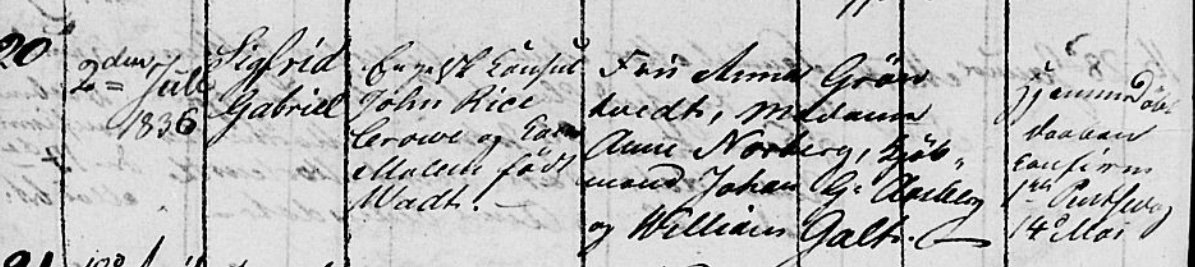 20
2den Juli
1836
Sigfrid
Gabriel
Engelsk Consul
John Rice
Crowe og
Malene född
Wadt. —
Frü Anna Grön
hvedt, Madame
Anne Norberg, Kjöb-
mand Johan G: Norberg
og William Galt. —
hjemmedöbt
confirm
14 Mai